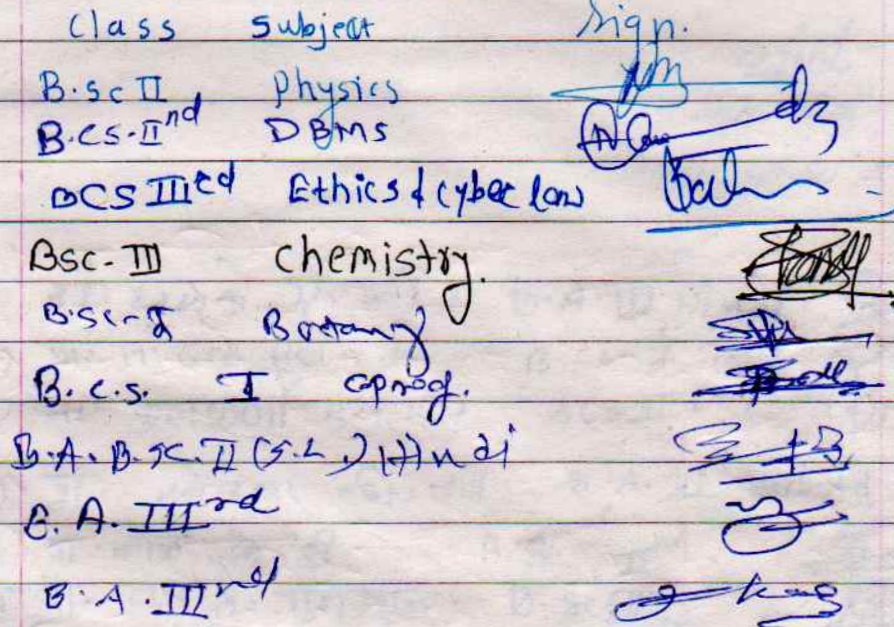 Class Subject Sign.
B.sc II Physics
B.CS-IInd DBMS
BCS IIIrd Ethics & cyber law
BSC-III Chemistry.
B.sc-I Bortany
B.c.s. I cprog.
B.A. B.sc.II (S.L.) Hindi
B. A. IIIrd
B.A. IIInd